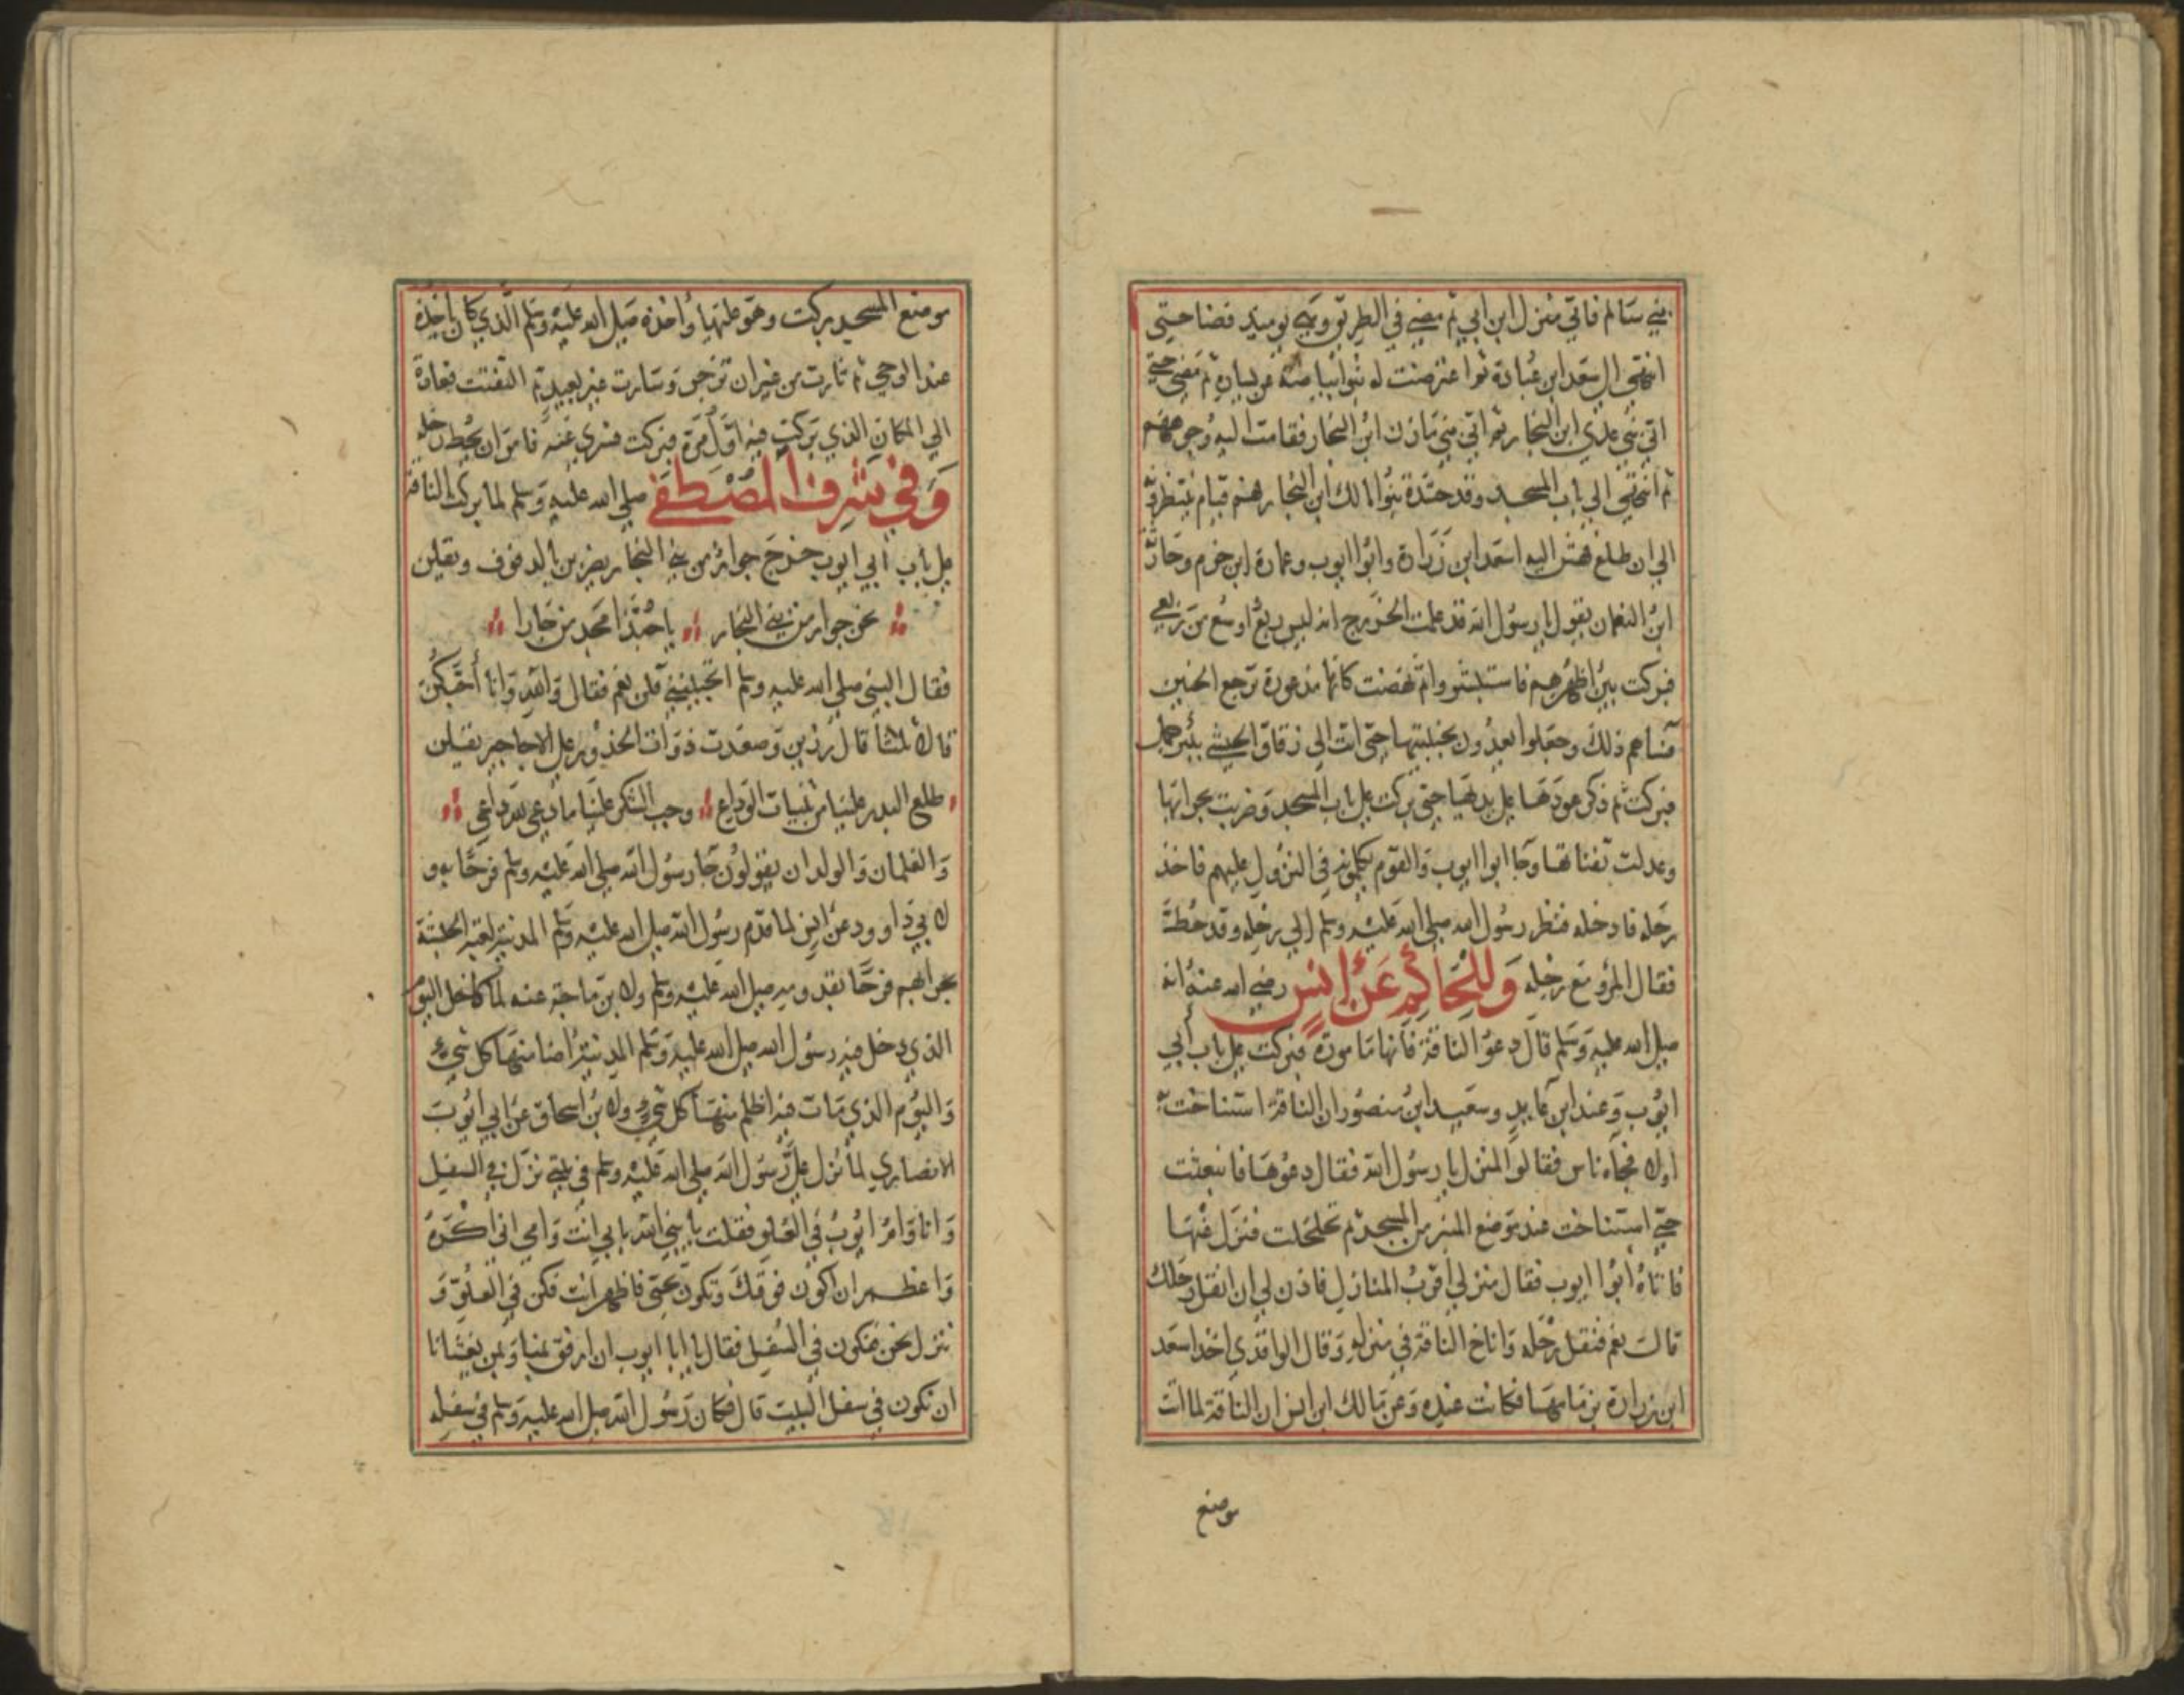 بني سالم فاتي منزل ابن ابي ثم مضي في الطريق وهي يوميذ فضا حتي
انتهي الي سعد ابن عبادة ثم اعترضت له بنوا بياضة عن يساره ثم مضي حتي
اتي بني عدي ابن النجار ثم اتي بني مازن ابن النجار فقامت اليه وجوههم
ثم انتهي الي باب المسجد وقد حشدة بنوا مالك ابن النجار فهم قيام ينتظرونه
الي ان طلع فهش اليه اسعد ابن زرارة وابوا ايوب وعمارة ابن خزم وحارثة
ابن النعمان يقول يا رسول الله قد علمت الخزرج انه ليس ربع اوسع من ربعي
فبركت بين اظهرهم فاستبشروا ثم نهضت كانها مذعورة ترجع الحنين
فساهم ذلك وجعلوا يعدون بجنبتيها حتي اتت الي زقاق الحبشي ببئر جمل
فبركت ثم ذكر عودها علي بدئها حتي بركت علي باب المسجد وضربت بجرانها
وعدلت ثفناتها وجا ابوا ايوب والقوم يكلمونه في النزول عليهم فاخذ
رحله فادخله فنظر رسول الله صلي الله عليه وسلم الي رحله وقد حط
فقال المرؤ مع رحله وللحاكم عن انس رضي الله عنه انه
صلي الله عليه وسلم قال دعوا الناقة فانها مامورة فبركت علي باب ابي
ايوب وعند ابن عايد وسعيد ابن منصور ان الناقة استناخت به
اولا فجاه ناس فقالوا المنزل يا رسول الله فقال دعوها فانبعثت
حتي استناخت عند موضع المنبر من المسجد ثم تحلحلت فنزل عنها
فاتاه ابوا ايوب فقال منزلي اقرب المنازل فاذن لي ان انقل رحلك
قال نعم فنقل رحله واناخ الناقة في منزله وقال الواقدي اخذ اسعد
ابن زرارة بزمامها فكانت عنده وعن مالك ابن انس ان الناقة لما اتت
موضع
موضع المسجد بركت وهو عليها واخذه صلي الله عليه وسلم الذي كان ياخذه
عند الوحي ثم ثارت من غير ان تزجر وسارت غير بعيد ثم التفتت فعادة
الي المكان الذي بركت فيه اول مرة فبركت فسري عنه فامر ان يحط رحله
وفي شرف المصطفي صلي الله عليه وسلم لما بركت الناقة
علي باب ابي ايوب خرج جوار من بني النجار يضربن بالدفوف ويقلن
نحن جوار من بني النجار يا حبذا محمد من جارا
فقال النبي صلي الله عليه وسلم اتحببنني قلن نعم فقال والله وانا احبكن
قال رزين وصعدت ذوات الخدور علي الاجاجير يقلن
طلع البدر علينا من ثنيات الوداع وجب الشكر علينا ما دعي لله داعي
والغلمان والولدان يقولون جا رسول الله صلي الله عليه وسلم فرحا به و
لابي داوود عن انس لما قدم رسول الله صلي الله عليه وسلم المدينة لعبة الحبشة
بحرابهم فرحا بقدومه صلي الله عليه وسلم ولابن ماجة عنه لما كان اليوم
الذي دخل فيه رسول الله صلي الله عليه وسلم المدينة اضا منها كل شيء
واليوم الذي مات فيه اظلم منها كل شيء ولابن اسحاق عن ابي ايوب
الانصاري لما نزل علي رسول الله صلي الله عليه وسلم في بيتي نزل في السفل
وانا وام ايوب في العلو فقلت يا نبي الله بابي انت وامي اني اكره
واعظم ان اكون فوقك وتكون تحتي فاظهر انت فكن في العلو و
ننزل نحن فنكون في السفل فقال يا ابا ايوب ان ارفق بنا وبمن يغشانا
ان نكون في سفل البيت قال فكان رسول الله صلي الله عليه وسلم في سفله